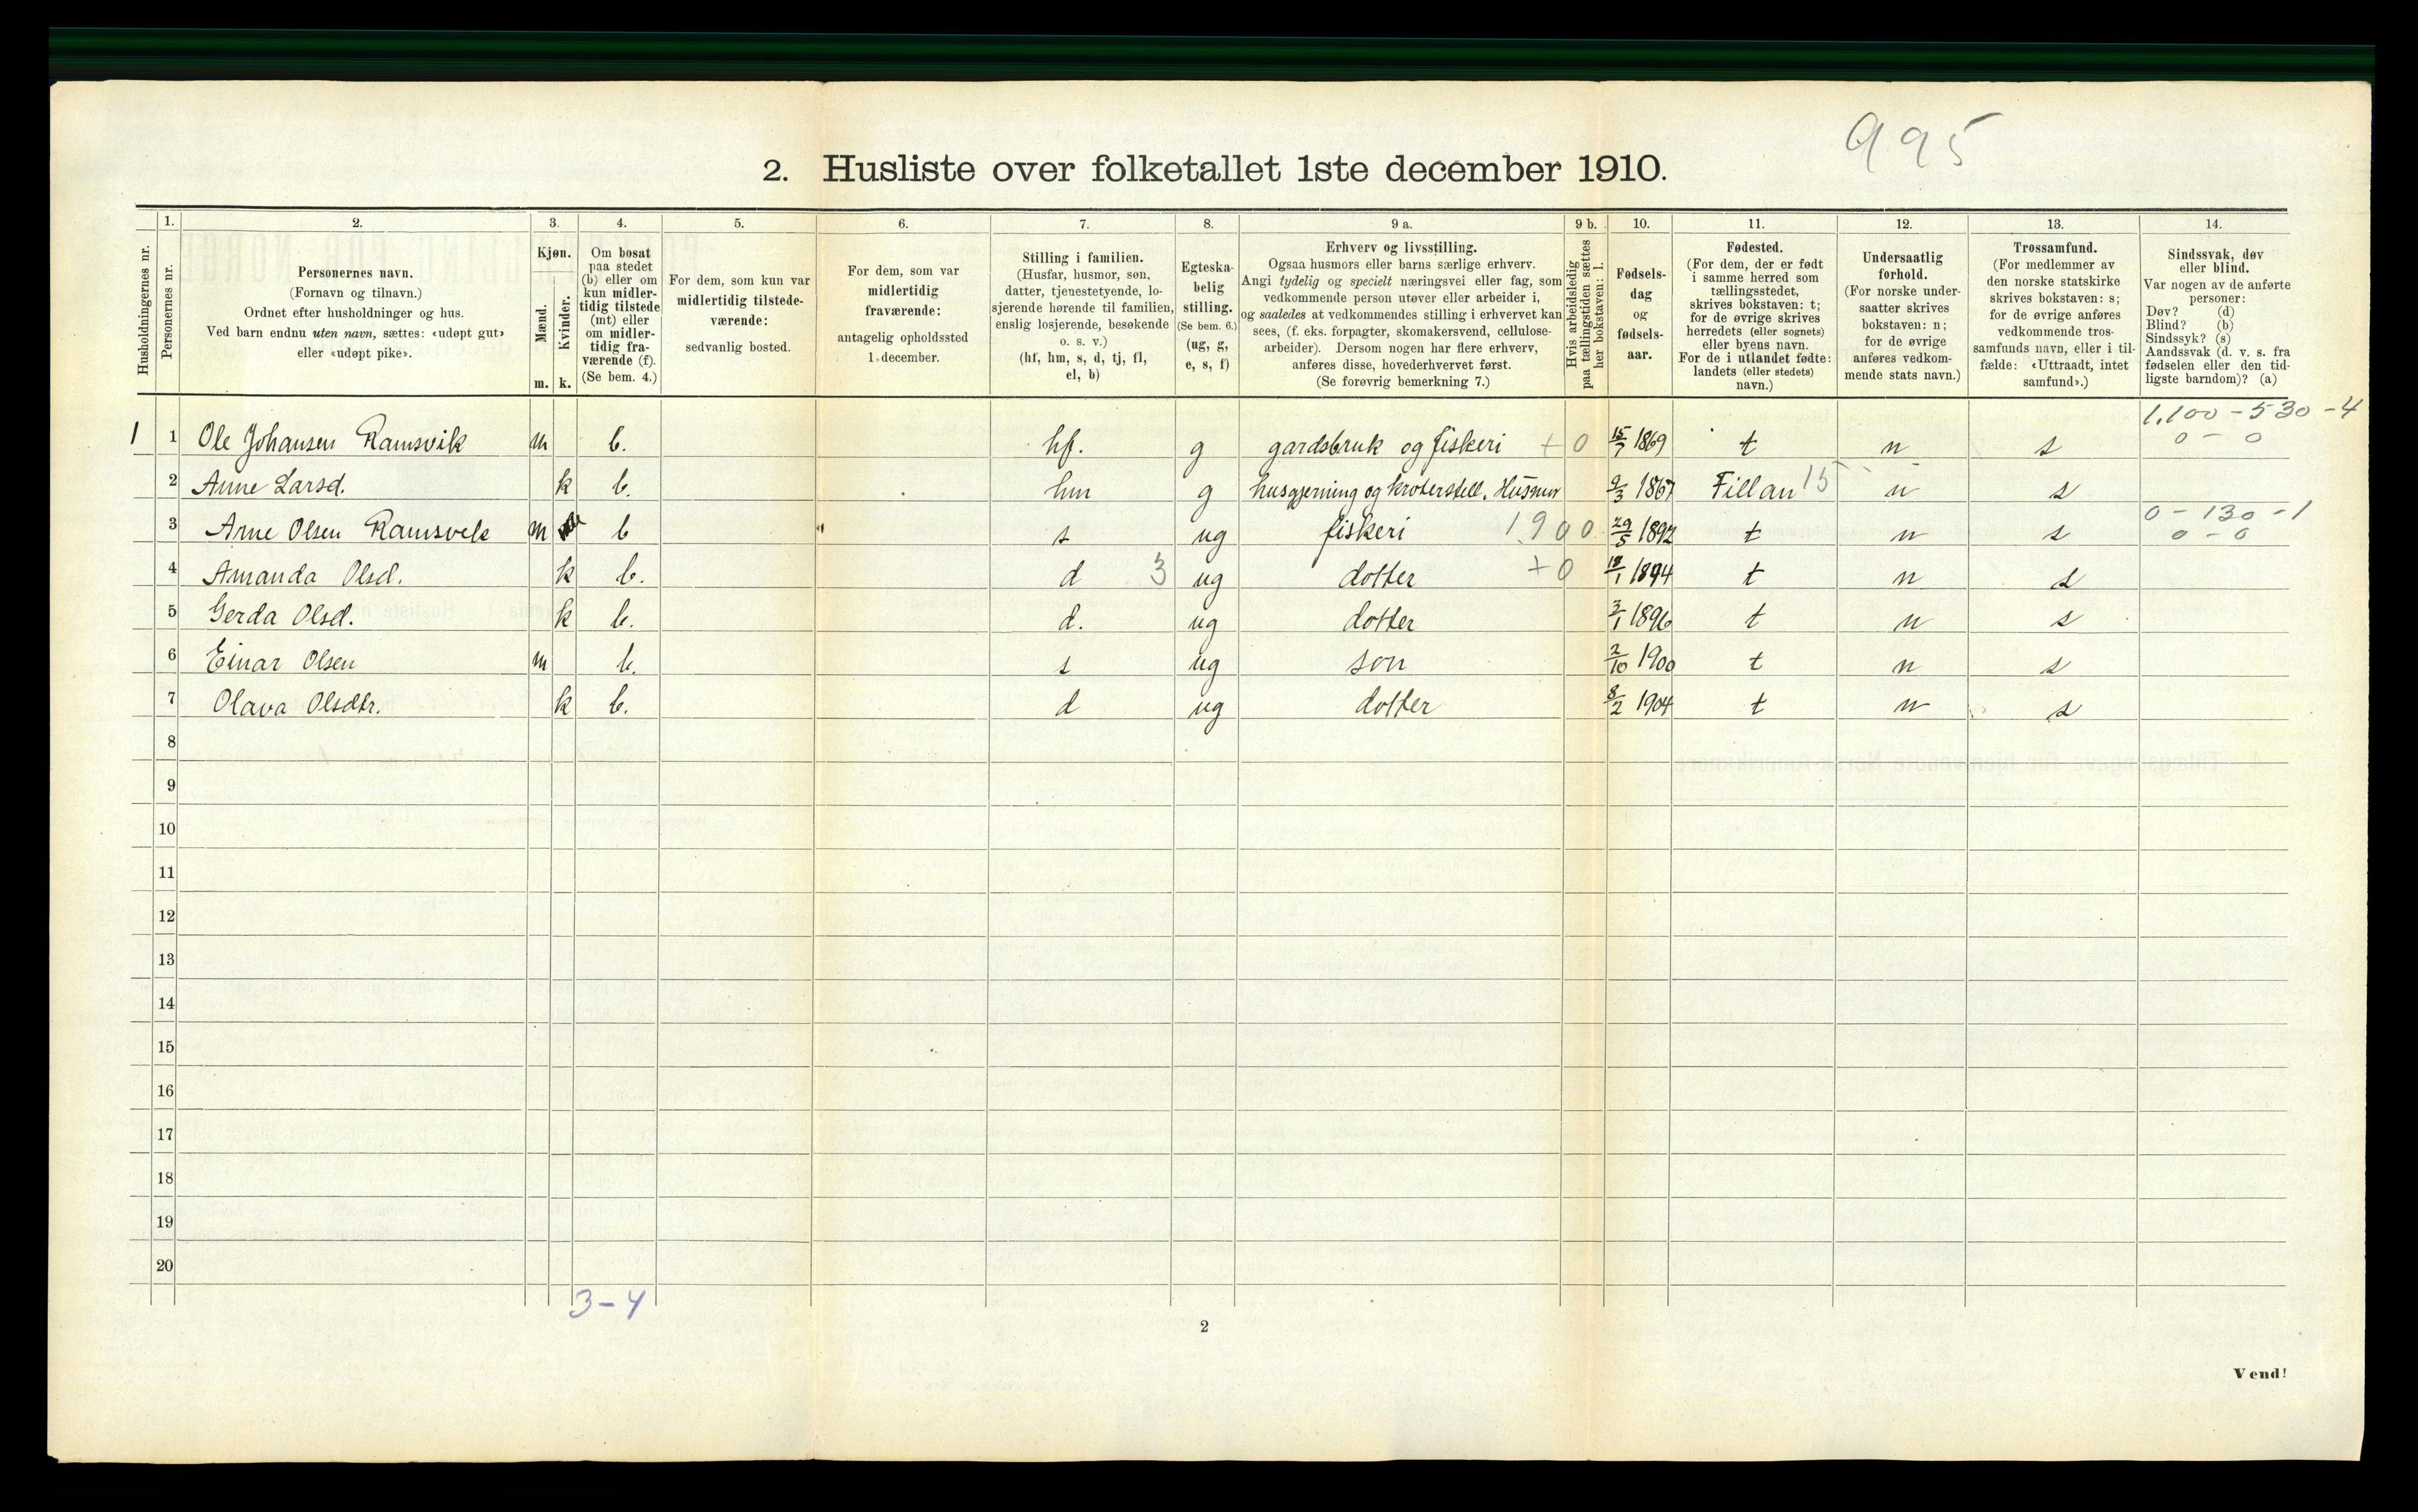 995
2. Husliste over folketallet 1ste december 1910.
Husholdningernes nr.
1.
Personernes nr.
2.
Personernes navn.
(Fornavn og tilnavn.)
Ordnet efter husholdninger og hus.
Ved barn endnu uten navn, sættes: «udøpt gut»
eller «udøpt pike».
3.
Kjøn.
Mænd.
Kvinder.
m. k.
4.
Om bosat
paa stedet
(b) eller om
kun midler-
tidig tilstede
(mt) eller
om midler-
tidig fra-
værende (f).
(Se bem. 4.)
5.
For dem, som kun var
midlertidig tilstede-
værende:
sedvanlig bosted.
6.
For dem, som var
midlertidig
fraværende:
antagelig opholdssted
1 december.
7.
Stilling i familien.
(Husfar, husmor, søn,
datter, tjenestetyende, lo-
sjerende hørende til familien,
enslig losjerende, besøkende
o. s. v.)
(hf, hm, s, d, tj, fl,
el, b)
8.
Egteska-
belig
stilling.
(Se bem. 6.)
(ug, g,
e, s, f)
9 a.
Erhverv og livsstilling.
Ogsaa husmors eller barns særlige erhverv.
Angi tydelig og specielt næringsvei eller fag, som
vedkommende person utøver eller arbeider i,
og saaledes at vedkommendes stilling i erhvervet kan
sees, (f. eks. forpagter, skomakersvend, cellulose-
arbeider). Dersom nogen har flere erhverv,
anføres disse, hovederhvervet først.
(Se forøvrig bemerkning 7.)
9 b.
Hvis arbeidsledig
paa tællingstiden sættes
her bokstaven: l.
10.
Fødsels-
dag
og
fødsels-
aar.
11.
Fødested.
(For dem, der er født
i samme herred som
tællingsstedet,
skrives bokstaven: t;
for de øvrige skrives
herredets (eller sognets)
eller byens navn.
For de i utlandet fødte:
landets (eller stedets)
navn.)
12.
Undersaatlig
forhold.
(For norske under-
saatter skrives
bokstaven: n;
for de øvrige
anføres vedkom-
mende stats navn.)
13.
Trossamfund.
(For medlemmer av
den norske statskirke
skrives bokstaven: s;
for de øvrige anføres
vedkommende tros-
samfunds navn, eller i til-
fælde: «Uttraadt, intet
samfund».)
14.
Sindssvak, døv
eller blind.
Var nogen av de anførte
personer:
Døv? (d)
Blind? (b)
Sindssyk? (s)
Aandssvak (d. v. s. fra
fødselen eller den tid-
ligste barndom)? (a)
1,100 - 530 - 4
1 1 Ole Johansen Ramsvik m b. hf. g gardsbruk og fiskeri + 0 15/7 1869 t n s 0 - 0
2 Anne Larsd. k b. hm g husgjerning og kroterstell. Husmor 9/3 1867 Fillan 15 n s
0 - 130 - 1
3 Arne Olsen Ramsvik m b s ug fiskeri 1900 29/5 1892 t n s 0 - 0
4 Amanda Olsd. k b. d 3 ug dotter + 0 18/1 1894 t n s
5 Gerda Olsd. k b. d. ug dotter 3/1 1896 t n s
6 Einar Olsen m b. s ug son 2/10 1900 t n s
7 Olava Olsdtr. k b. d ug dotter 8/2 1904 t n s
8
9
10
11
12
13
14
15
16
17
18
19
20
3-4
2
Vend!